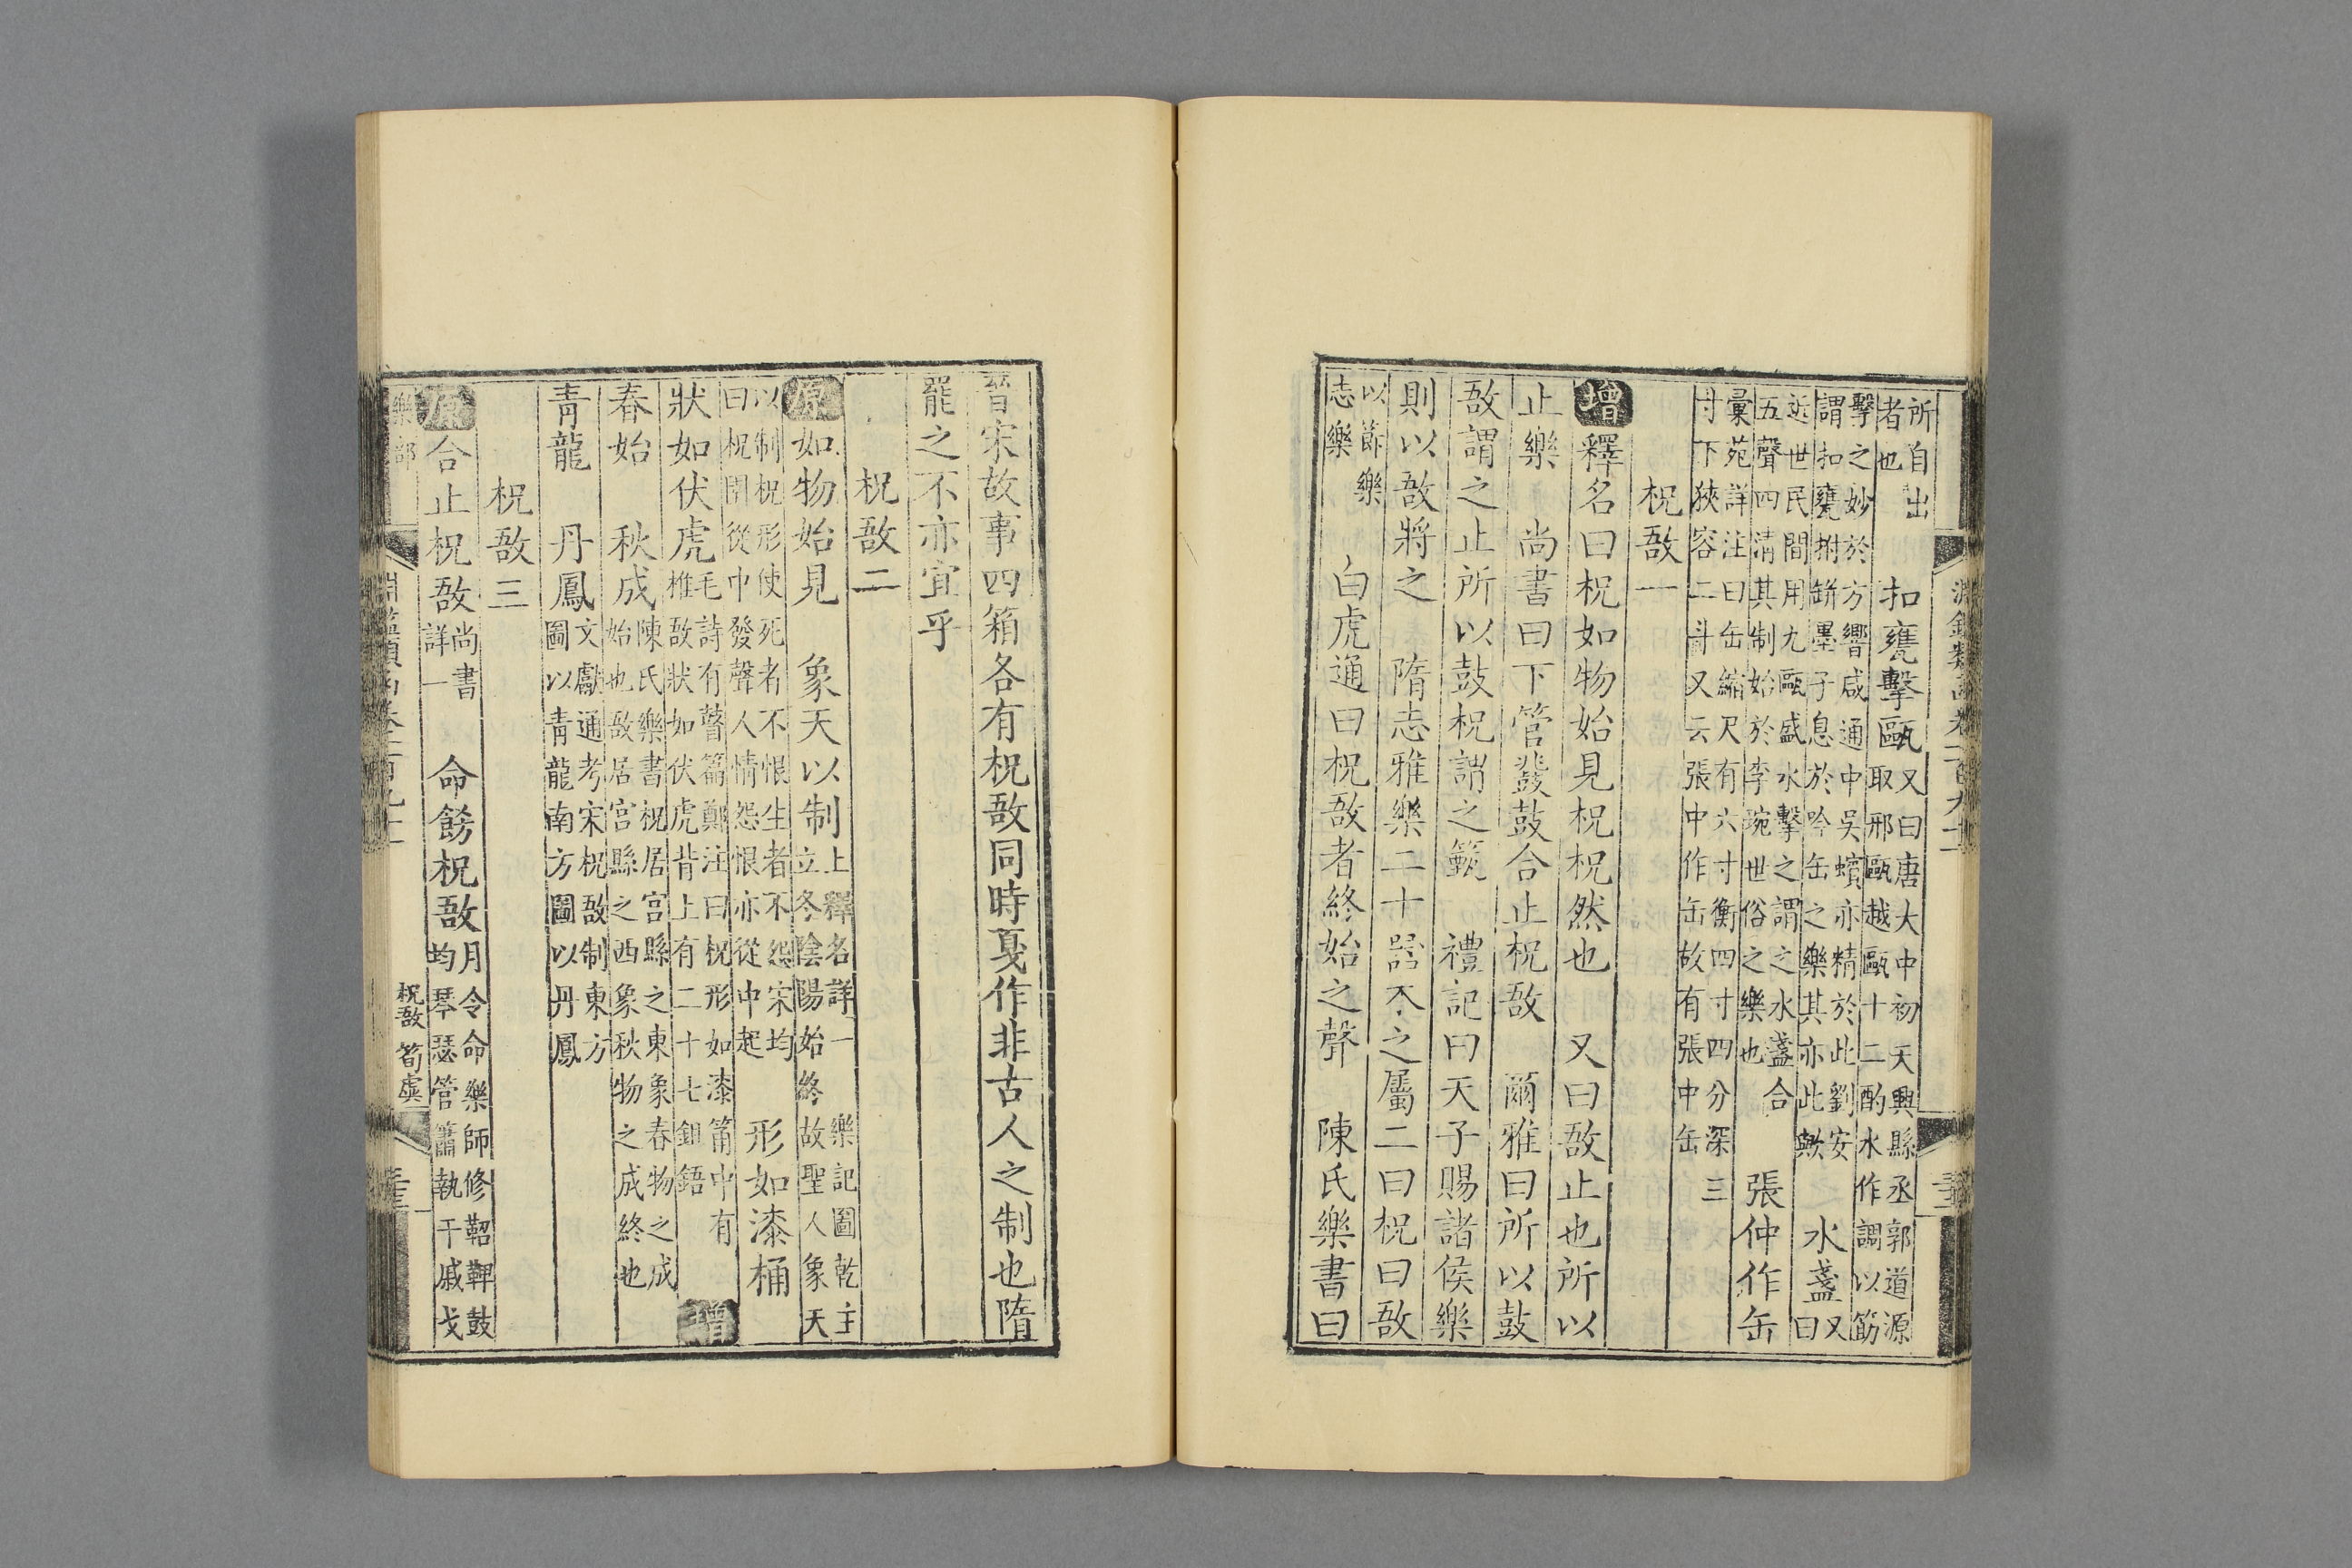 所自出
者也
扣甕擊甌
又曰唐大中初天興縣丞郭道源
取邢甌越甌十二酌水作調以筯
擊之妙於方響咸通中吳蠙亦精於此劉安
謂扣甕拊缾墨子息於吟缶之樂其亦此歟
水盞
又
曰
近世民間用九甌盛水擊之謂之水盞合
五聲四清其制始於李琬世俗之樂也
張仲作缶
彙苑詳注曰缶縮尺有六寸衡四寸四分深三
寸下狹容二斗又云張中作缶故有張中缶
柷敔一
增釋名曰柷如物始見柷柷然也 又曰敔止也所以
止樂 尚書曰下管鼗鼓合止柷敔 爾雅曰所以鼓
敔謂之止所以鼓柷謂之籈 禮記曰天子賜諸侯樂
則以敔將之 隋志雅樂二十器木之屬二曰柷曰敔
以節樂
志樂
白虎通曰柷敔者終始之聲 陳氏樂書曰
晉宋故事四箱各有柷敔同時戛作非古人之制也隋
罷之不亦宜乎
柷敔二
原如物始見 象天以制
上釋名詳一 樂記圖乾主
立冬陰陽始終故聖人象天
以制柷形使死者不恨生者不怨宋均
曰柷閉從中發聲人情怨恨亦從中起
形如漆桶
狀如伏虎
毛詩有瞽篇鄭注曰柷形如漆筩中有
椎敔狀如伏虎背上有二十七鉏鋙
增
春始 秋成
陳氏樂書柷居宮縣之東象春物之成
始也敔居宮縣之西象秋物之成終也
青龍 丹鳳
文獻通考宋柷敔制東方
圖以青龍南方圖以丹鳳
柷敔三
原合止柷敔
尚書
詳一
命餝柷敔
月令命樂師修鞀鞞鼓
均琴瑟管簫執干戚戈
樂部
柷敔 筍虡